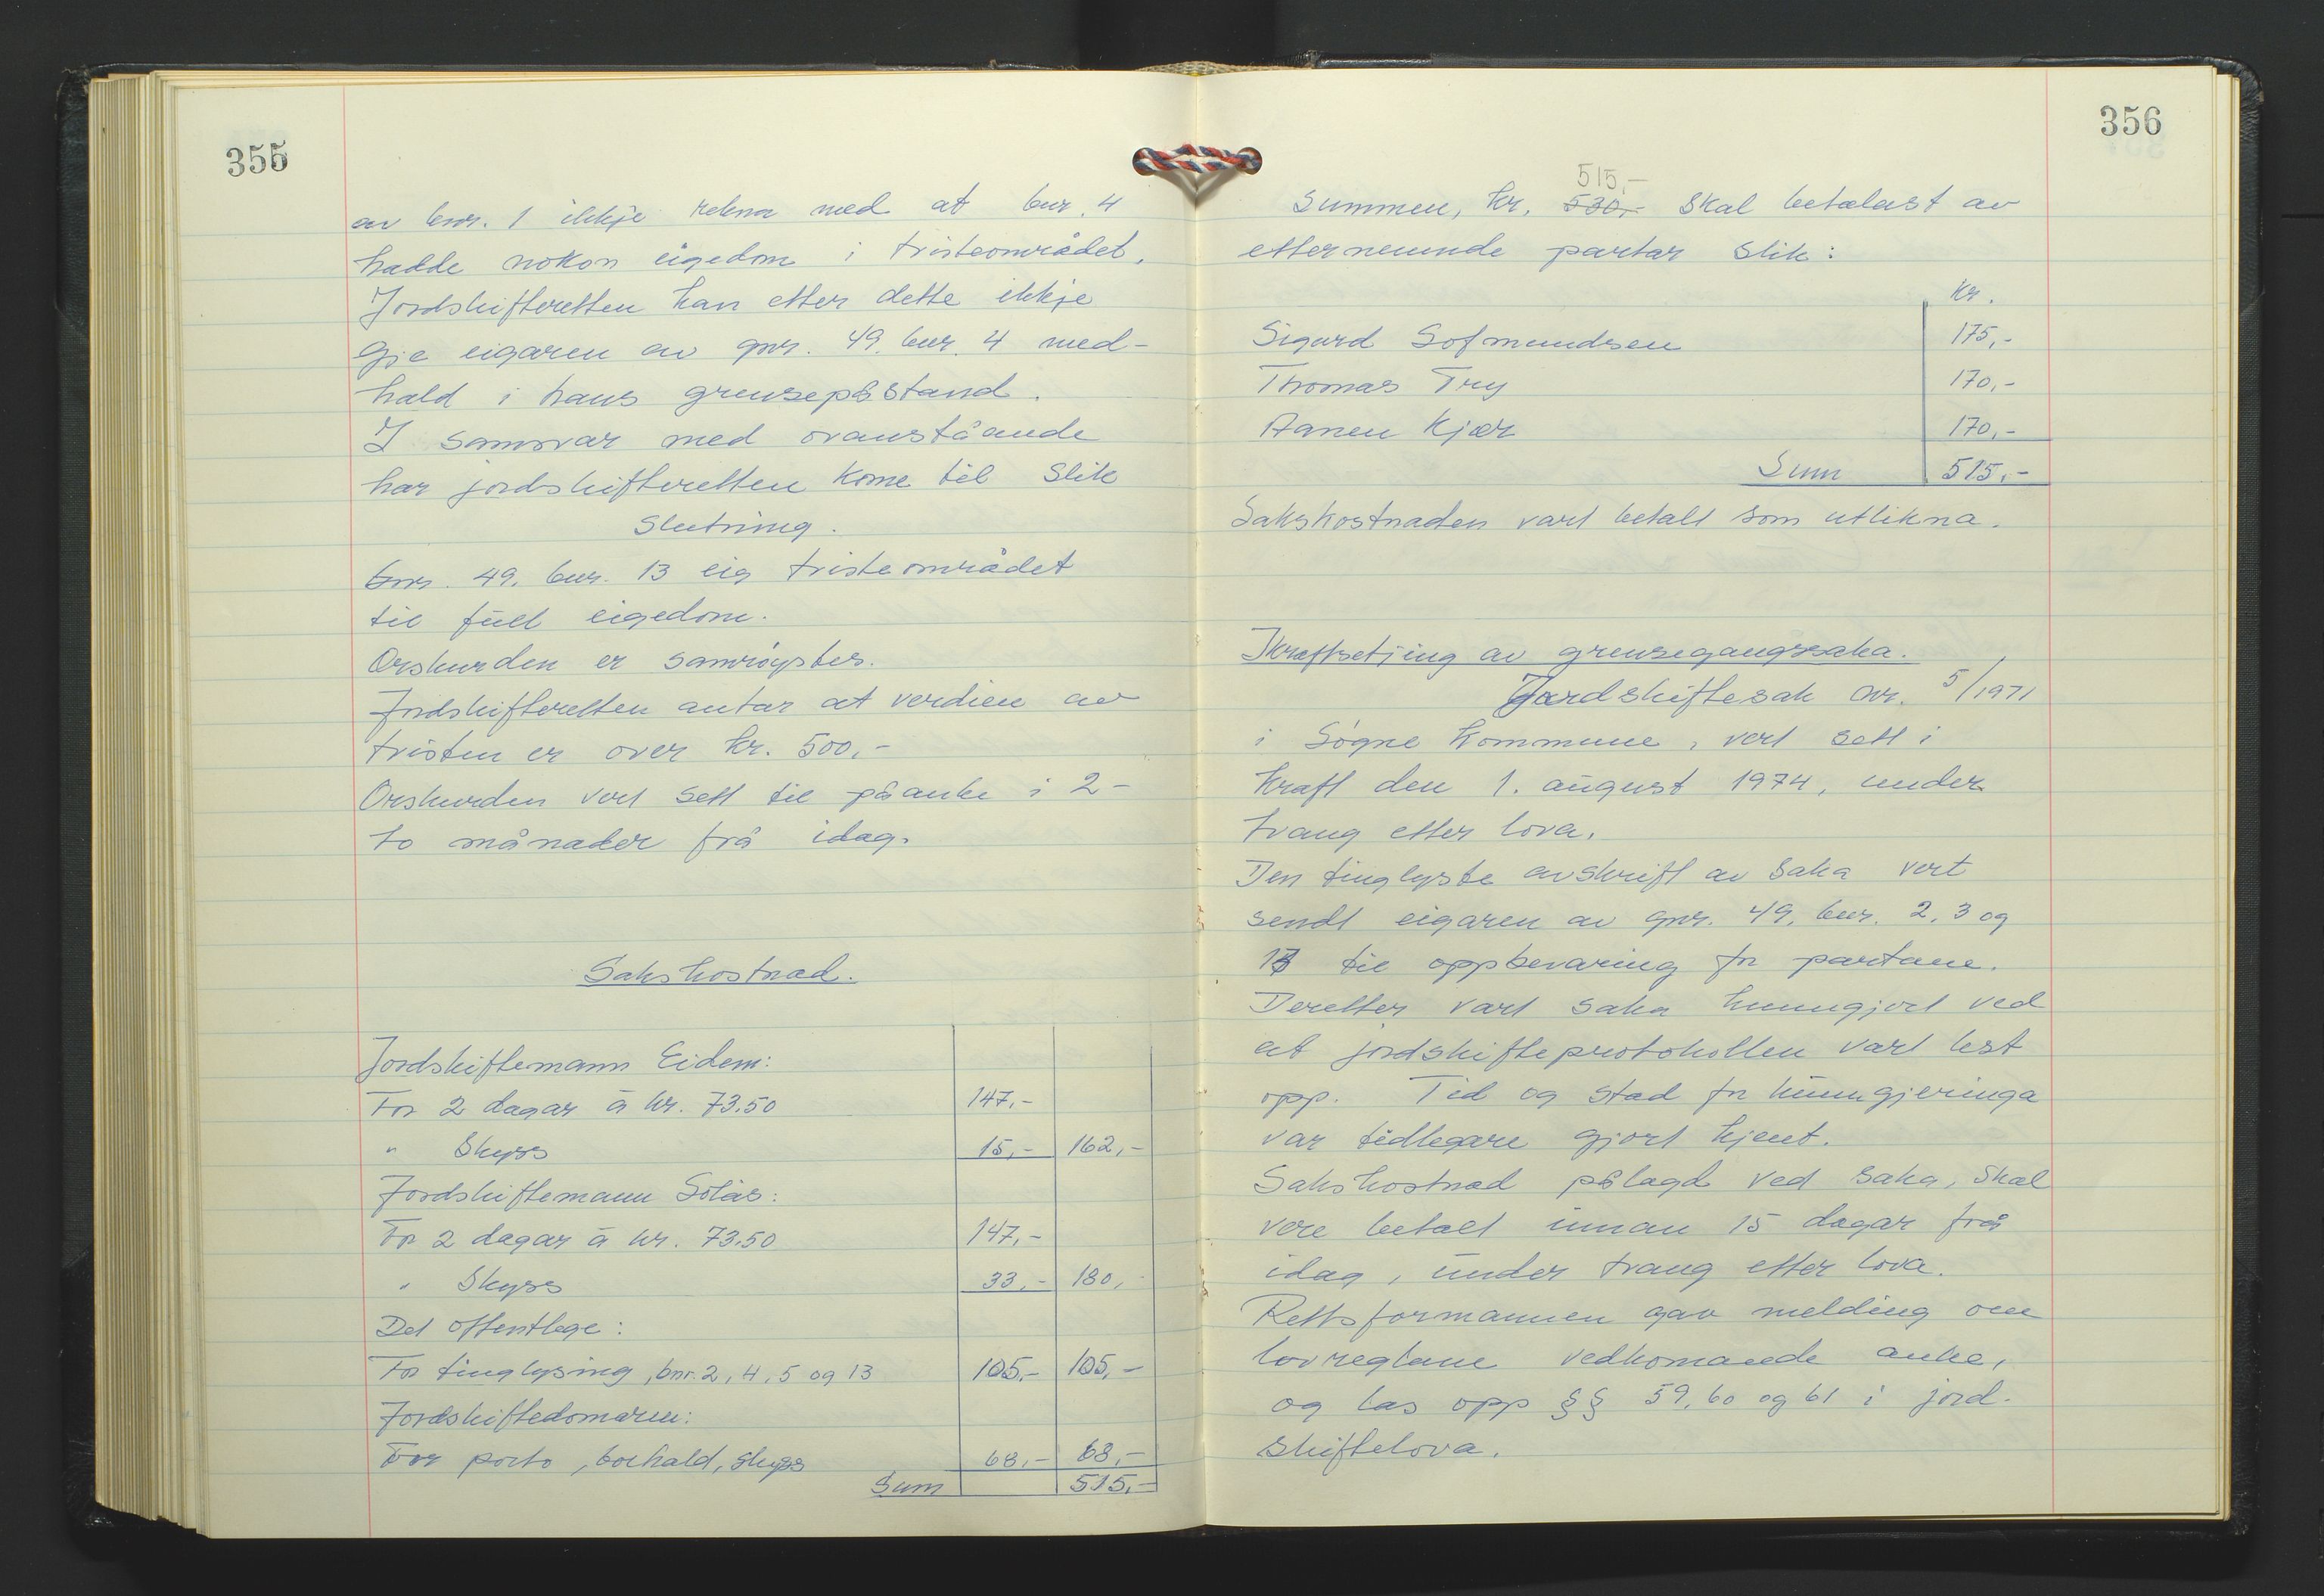 355
av bnr. 1 ikkje rekna med at bnr. 4
hadde nokon eigedom i tvisteområdet.
Jordskifteretten kan etter dette ikkje
gje eigaren av gnr. 49. bnr. 4 med-
hald i hans grensepåstand.
I samsvar med ovanståande
har jordskifteretten kome til slik
slutning.
Gnr. 49. bnr. 13 eig tvisteområdet
til full eigedom.
Orskurden er samrøystes.
Jordskifteretten antar at verdien av
tvisten er over kr. 500,-
Orskurden vert sett til påanke i 2-
to månader frå idag.
Sakskostnad.
Jordskiftemann Eidem:
For 2 dagar à kr. 73.50 147,-
" Skyss 15,- 162,-
Jordskiftemann Solås:
For 2 dagar à kr. 73.50 147,-
" Skyss 33,- 180,-
Det offentlege:
For tinglysing, bnr. 2, 4, 5 og 13 105,- 105,-
Jordskiftedomaren:
For porto, borhald, skyss 68,- 68,-
Sum 515,-
356
515,-
Summen, kr. 530,- skal betalast av
etternemnde partar slik:
Kr.
Sigurd Sofmundsen 175,-
Thomas Try 170,-
Aanen Kjær 170,-
Sum 515,-
Sakskostnaden vart betalt som utlikna.
Ikraftsetjing av grensegangssaka.
Jordskiftesak nr. 5/1971
i Søgne kommune, vert sett i
kraft den 1. august 1974, under
tvang etter lova.
Den tinglyste avskrift av saka vert
sendt eigaren av gnr. 49, bnr. 2, 3 og
13 til oppbevaring for partane.
Deretter vart saka kunngjort ved
at jordskifteprotokollen vart lest
opp. Tid og stad for kunngjeringa
var tidlegare gjort kjent.
Sakskostnad pålagd ved saka, skal
vere betalt innan 15 dagar frå
idag, under tvang etter lova.
Rettsformannen gav melding om
lovreglane vedkomande anke,
og las opp §§ 59, 60 og 61 i jord-
skiftelova.